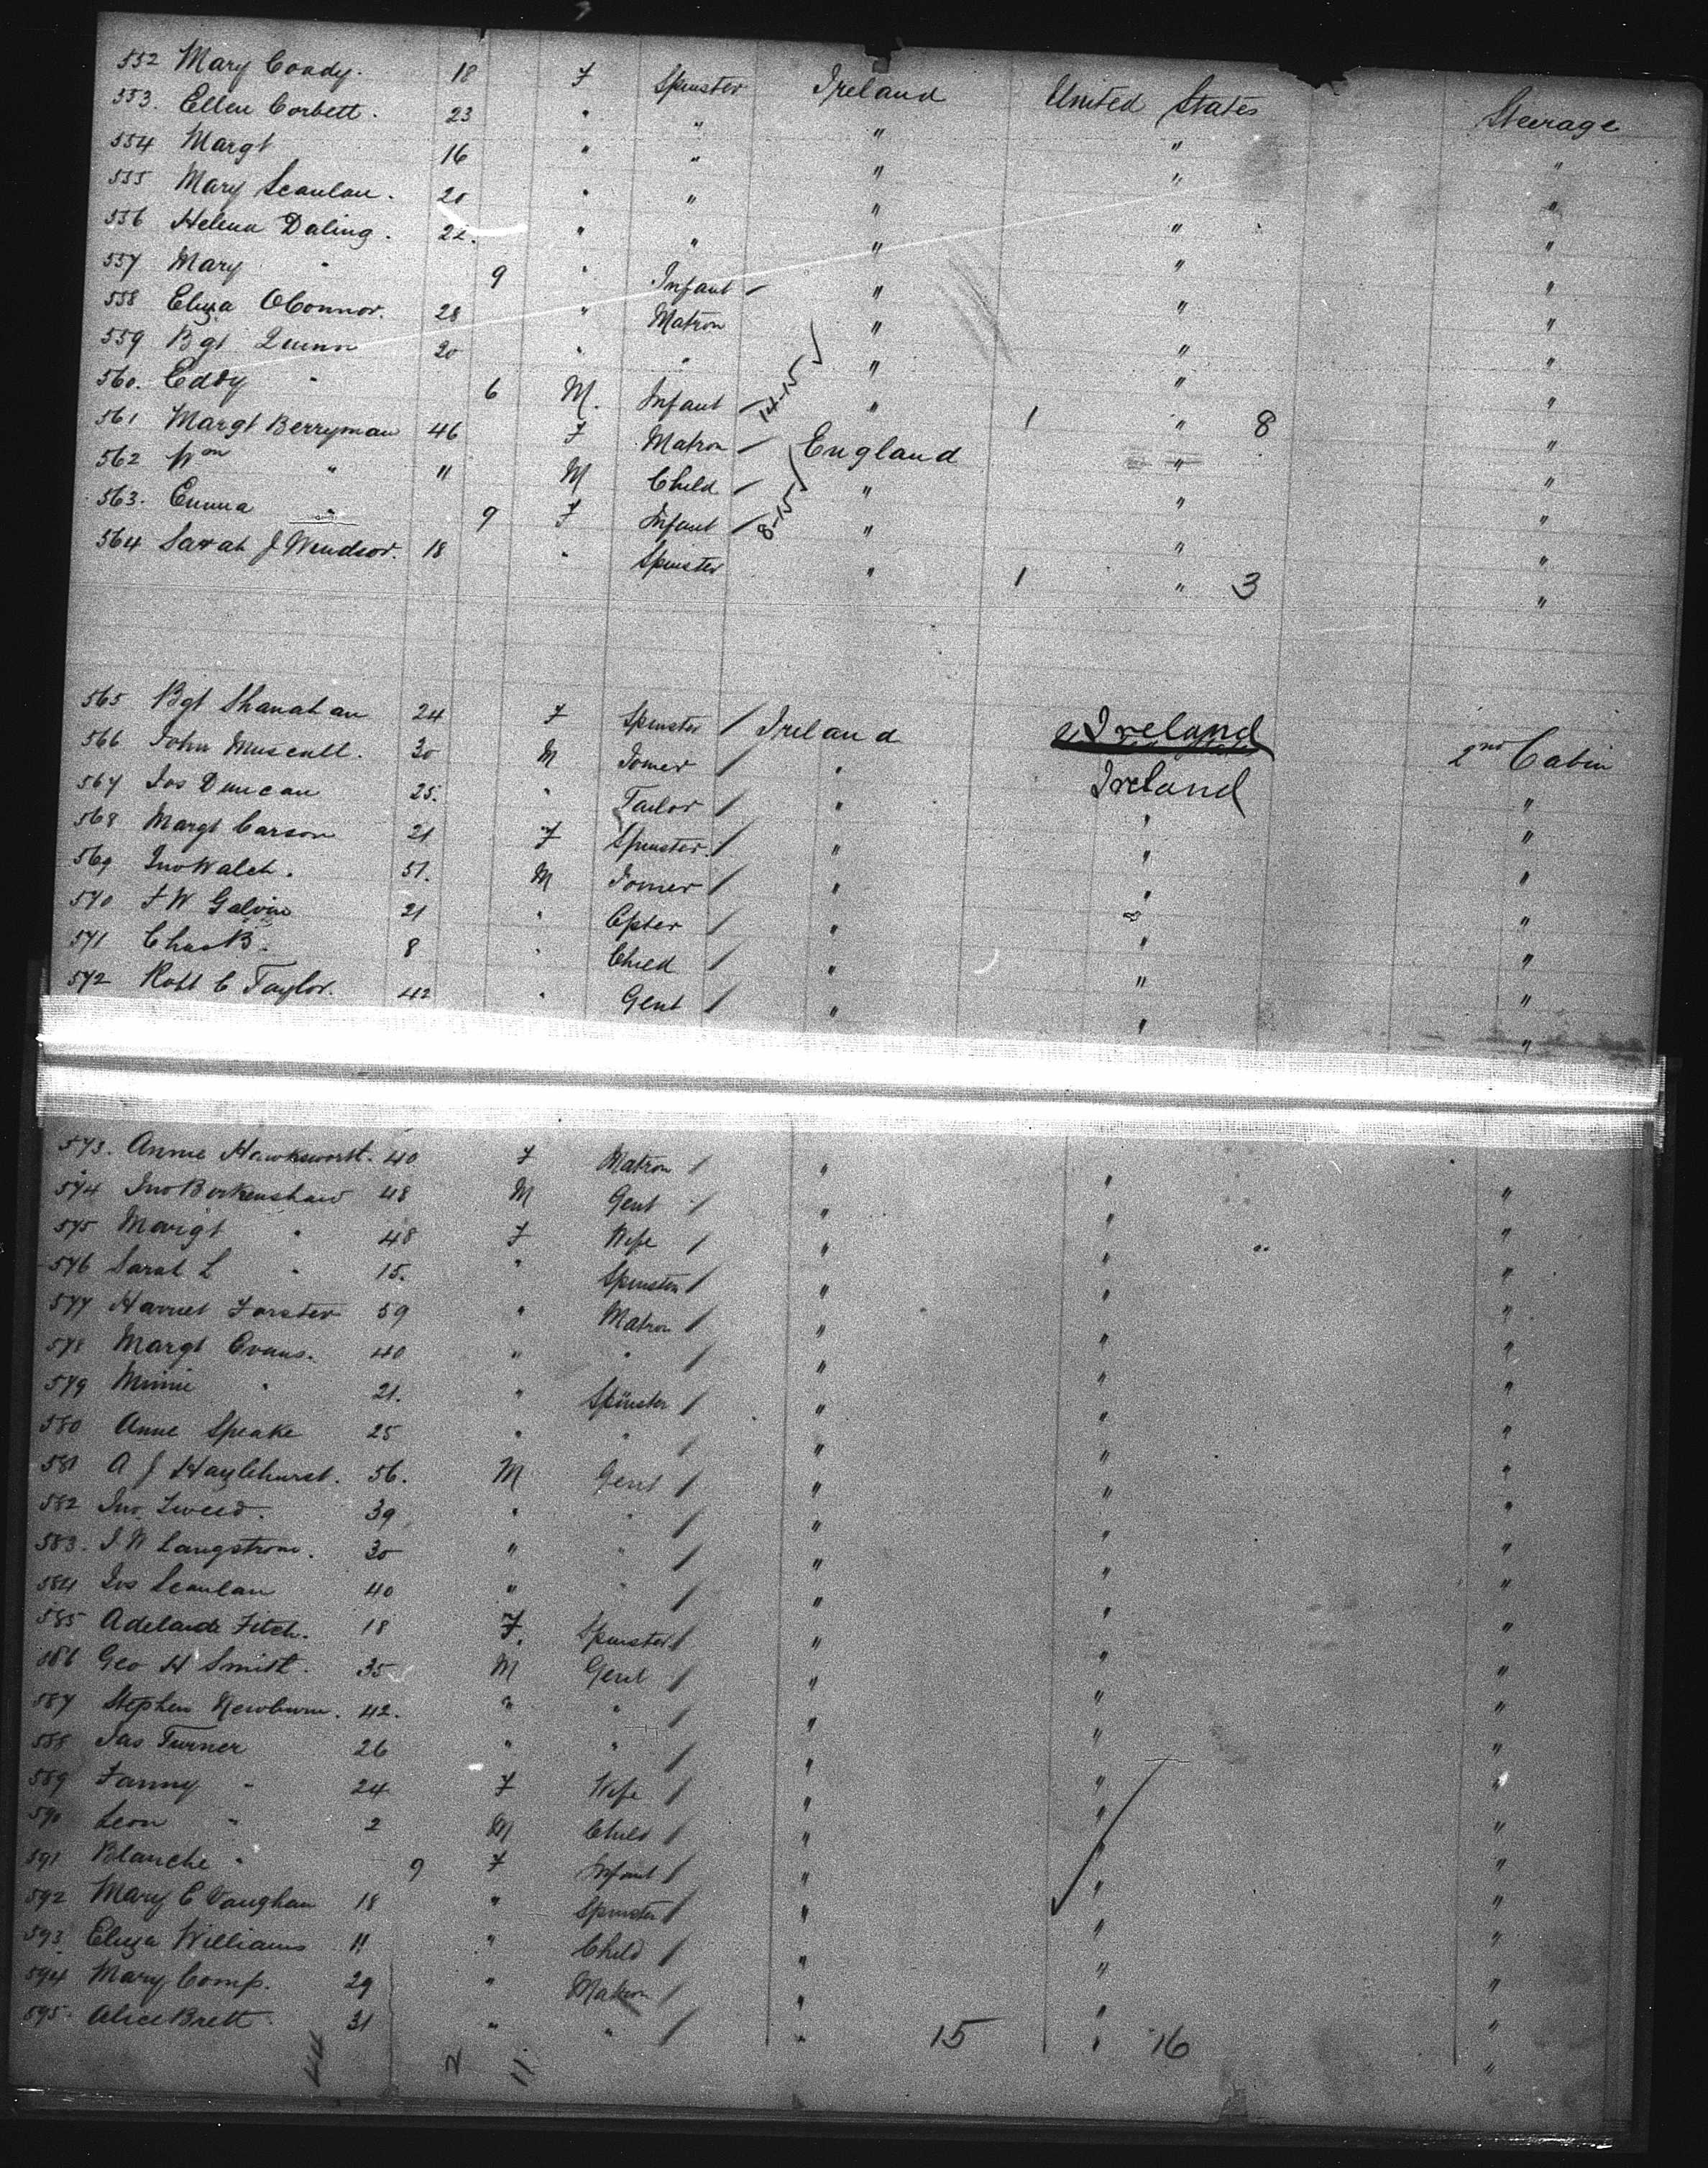 552 Mary Coady. 18 F Spinster Ireland United States Steerage
553. Ellen Corbett. 23 " " " " "
554 Margt 16 " " " " "
555 Mary Scanlan. 20 " " " " "
556 Helena Daling. 22. " " " " "
557 Mary " 9 " Infant " " "
558 Eliza OConnor. 28 " Matron " " "
559 Bgt Quinn 20 " " " " "
560. Eddy " 6 M. Infant 14-15 " 1 " 8 "
561 Margt Berryman 46 F Matron England " "
562 Wm " 11 M Child " " "
563. Emma " 9 F Infant 8-15 " " "
564 Sarah J Windsor. 18 " Spinster " 1 " 3 "
565 Bgt Shanahan 24 F Spinster Ireland Ireland 2nd Cabin
566 John Muscatt. 30 M Joiner " Ireland "
567 Jos Duncan 25. " Tailor " " "
568 Margt Carson 21 F Spinster. " " "
569 Jno Walch. 51. M Joiner " " "
570 F W Galvin 21 " Cpter " " "
571 Chas B. 8 " Child " " "
572 Robt C Taylor. 42 " Gent " " "
573. Annie Hawksworth. 40 F Matron " " "
574 Jno Berkenshaw 48 M Gent " " "
575 Margt " 48 F Wife " " "
576 Sarah L " 15. " Spinster " " "
577 Harriet Forster 59 " Matron " " "
578 Margt Evans. 40 " " " " "
579 Minnie " 21. " Spinster " " "
580 Anne Speake 25 " " " " "
581 A J Hazlehurst. 56. M Gent " " "
582 Jno Tweed. 39 " " " " "
583. J W Langstrom. 30 " " " " "
584 Jos Scanlan 40 " " " " "
585 Adelaide Fitch. 18 F. Spinster " " "
586 Geo H Smith. 35 M Gent " " "
587 Stephen Newburn. 42. " " " " "
588 Jas Turner 26 " " " " "
589 Fanny " 24 F Wife " " "
590 Leon " 2 M Child " " "
591 Blanche " 9 F Infant " " "
592 Mary C Vaughan 18 " Spinster " " "
593. Eliza Williams 11 " Child " " "
594 Mary Comp. 29 " Matron " " "
595. Alice Brett 31 " " " 15 " 16 "
44 2 11